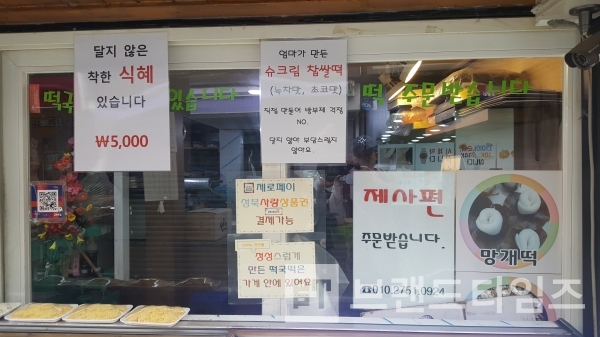 달지 않은
착한 식혜
있습니다
₩5,000
엄마가 만든
슈크림 찹쌀떡
(녹차맛, 초코맛)
직접 만들어 방부제 걱정
NO.
달지 않아 부담스럽지
않아요
떡국
있습니다
떡 주문받습니다
제로페이
성북사랑상품권
결제가능
정성스럽게
만든 떡국떡은
가게 안에 있어요
제사편
주문받습니다.
☎010.2751.0924
망개떡
브랜드타임즈